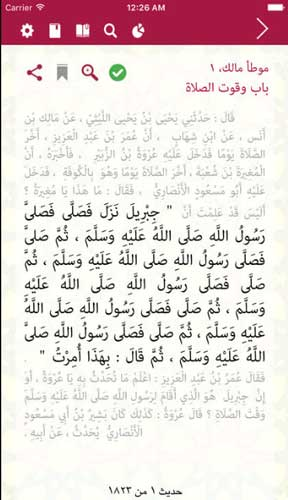 Carrier 12:26 AM
موطأ مالك، ١
باب وقوت الصلاة
قَالَ : حَدَّثَنِي يَحْيَى بْنُ يَحْيَى اللَّيْثِيُّ ، عَنْ مَالِكِ بْنِ
أَنَسٍ ، عَنِ ابْنِ شِهَابٍ ، أَنَّ عُمَرَ بْنَ عَبْدِ الْعَزِيزِ ، أَخَّرَ
الصَّلَاةَ يَوْمًا فَدَخَلَ عَلَيْهِ عُرْوَةُ بْنُ الزُّبَيْرِ ، فَأَخْبَرَهُ ، أَنَّ
الْمُغِيرَةَ بْنَ شُعْبَةَ ، أَخَّرَ الصَّلَاةَ يَوْمًا وَهُوَ بِالْكُوفَةِ ، فَدَخَلَ
عَلَيْهِ أَبُو مَسْعُودٍ الْأَنْصَارِيُّ ، فَقَالَ : مَا هَذَا يَا مُغِيرَةُ ؟
أَلَيْسَ قَدْ عَلِمْتَ أَنَّ " جِبْرِيلَ نَزَلَ فَصَلَّى فَصَلَّى
رَسُولُ اللَّهِ صَلَّى اللَّهُ عَلَيْهِ وَسَلَّمَ ، ثُمَّ صَلَّى
فَصَلَّى رَسُولُ اللَّهِ صَلَّى اللَّهُ عَلَيْهِ وَسَلَّمَ ، ثُمَّ
صَلَّى فَصَلَّى رَسُولُ اللَّهِ صَلَّى اللَّهُ عَلَيْهِ
وَسَلَّمَ ، ثُمَّ صَلَّى فَصَلَّى رَسُولُ اللَّهِ صَلَّى اللَّهُ
عَلَيْهِ وَسَلَّمَ ، ثُمَّ صَلَّى فَصَلَّى رَسُولُ اللَّهِ صَلَّى
اللَّهُ عَلَيْهِ وَسَلَّمَ ، ثُمَّ قَالَ : بِهَذَا أُمِرْتُ "
فَقَالَ عُمَرُ بْنُ عَبْدِ الْعَزِيزِ : اعْلَمْ مَا تُحَدِّثُ بِهِ يَا عُرْوَةُ ، أَوَ
إِنَّ جِبْرِيلَ هُوَ الَّذِي أَقَامَ لِرَسُولِ اللَّهِ صَلَّى اللَّهُ عَلَيْهِ وَسَلَّمَ
وَقْتَ الصَّلَاةِ ؟ قَالَ عُرْوَةُ : كَذَلِكَ كَانَ بَشِيرُ بْنُ أَبِي مَسْعُودٍ
الْأَنْصَارِيُّ يُحَدِّثُ ، عَنْ أَبِيهِ .
حديث ١ من ١٨٢٣